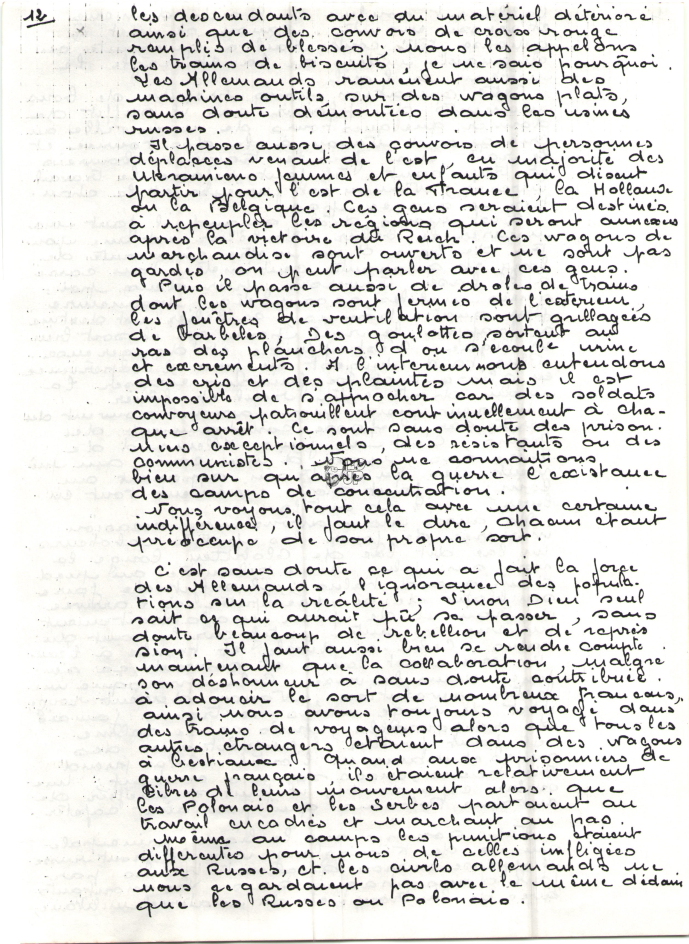 12
les descendants avec du matériel détérioré
ainsi que des convois de croix rouge
remplis de blessés, nous les appelons
les trains de biscuits, je ne sais pourquoi.
Les Allemands ramènent aussi des
machines outils sur des wagons plats,
sans doute démontées dans les usines
russes.
Il passe aussi des convois de personnes
déplacées venant de l'est, en majorité des
Ukrainiens femmes et enfants qui disent
partir pour l'est de la France, la Hollande
ou la Belgique. Ces gens seraient destinés
à repeupler les régions qui seront annexées
après la victoire du Reich. Ces wagons de
marchandise sont ouverts et ne sont pas
gardés, on peut parler avec ces gens.
Puis il passe aussi de drôles de trains
dont les wagons sont fermés de l'extérieur,
les fenêtres de ventilation sont grillagées
de barbelés, Des goulottes sortent au
ras des planchers d'ou s'écoule urine
et excréments. A l'intérieur nous entendons
des cris et des plaintes mais il est
impossible de s'approcher car des soldats
convoyeurs patrouillent continuellement à cha-
que arrêt. Ce sont sans doute des prison.
niers exceptionnels, des résistants ou des
communistes. Nous ne connaitrons
bien sur qu'après la guerre l'existance
des camps de concentration.
Nous voyons tout cela avec une certaine
indifférence, il faut le dire, chacun étant
préoccupé de son propre sort.
C'est sans doute ce qui a fait la force
des Allemands l'ignorance des popula-
tions sur la réalité; Sinon Dieu seul
sait ce qui aurait pû se passer, sans
doute beaucoup de rebellion et de repres
sion. Il faut aussi bien se rendre compte.
maintenant que la collaboration, malgré
son déshonneur à sans doute contribuée.
à adoucir le sort de nombreux francais,
ainsi nous avons toujours voyagé dans
des trains de voyageurs alors que tous les
autres étrangers étaient dans des wagons
à bestiaux. Quand aux prisonniers de
guerre français, ils étaient relativement
libres de leurs mouvement alors que
les Polonais et les Serbes partaient au
travail encadrés et marchant au pas.
même au camps les punitions étaient
différentes pour nous de celles infligées
aux Russes, et les civils allemands ne
nous regardaient pas avec le même dédain
que les Russes ou Polonais.